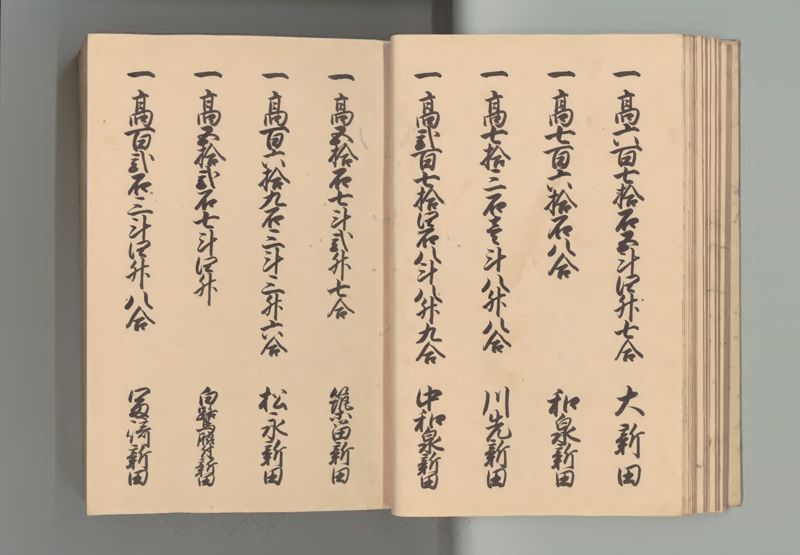 一 高六百七拾石五斗四升七合 大新田
一 高七百六拾石八合 和泉新田
一 高七拾二石壱斗八升八合 川先新田
一 高弐百七拾四石八斗八升九合 中和泉新田
一 高五拾石七斗弐升七合 新田
一 高百六拾九石三斗三升六合 松永新田
一 高五拾弐石七斗四升 白鷺新田
一 高百弐石三斗四升八合 富崎新田